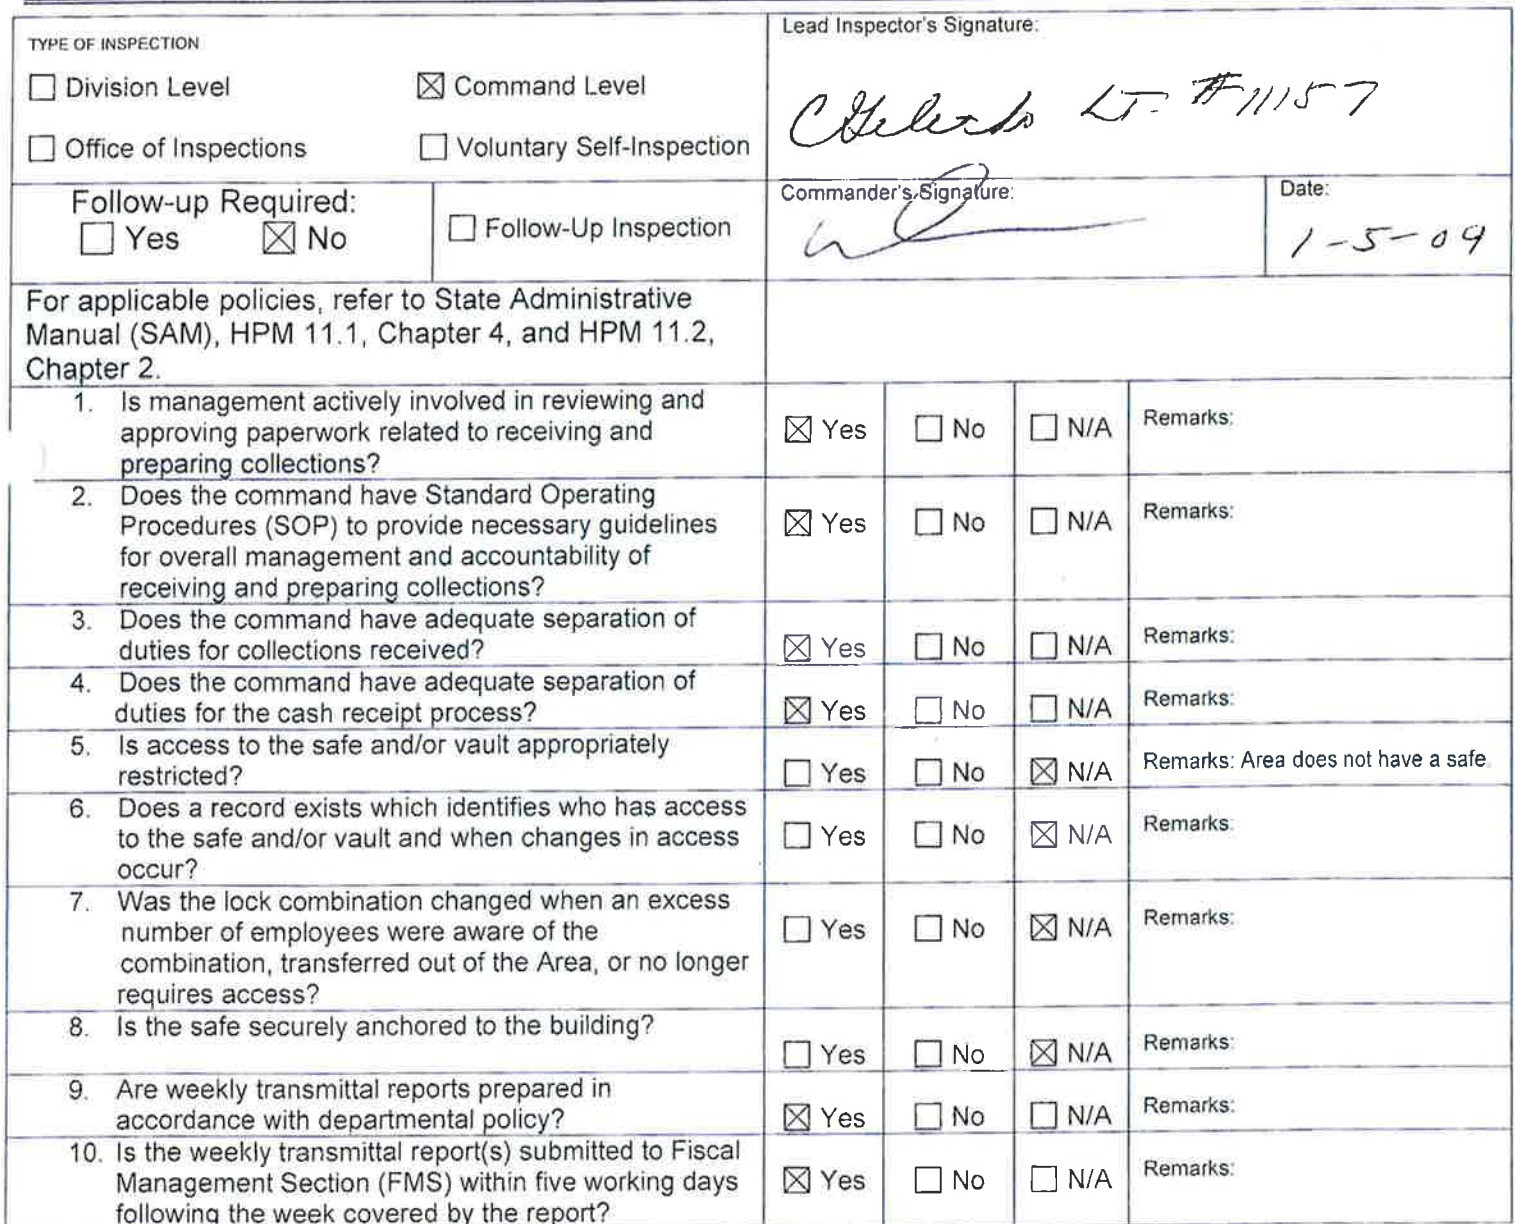 TYPE OF INSPECTION
☐ Division Level ☒ Command Level
☐ Office of Inspections ☐ Voluntary Self-Inspection
Lead Inspector's Signature:
LT. #11157
Follow-up Required:
☐ Yes ☒ No
☐ Follow-Up Inspection
Commander's Signature:
Date:
1-5-09
For applicable policies, refer to State Administrative
Manual (SAM), HPM 11.1, Chapter 4, and HPM 11.2,
Chapter 2.
1. Is management actively involved in reviewing and
approving paperwork related to receiving and
preparing collections?
☒ Yes ☐ No ☐ N/A Remarks:
2. Does the command have Standard Operating
Procedures (SOP) to provide necessary guidelines
for overall management and accountability of
receiving and preparing collections?
☒ Yes ☐ No ☐ N/A Remarks:
3. Does the command have adequate separation of
duties for collections received?
☒ Yes ☐ No ☐ N/A Remarks:
4. Does the command have adequate separation of
duties for the cash receipt process?
☒ Yes ☐ No ☐ N/A Remarks:
5. Is access to the safe and/or vault appropriately
restricted?
☐ Yes ☐ No ☒ N/A Remarks: Area does not have a safe.
6. Does a record exists which identifies who has access
to the safe and/or vault and when changes in access
occur?
☐ Yes ☐ No ☒ N/A Remarks:
7. Was the lock combination changed when an excess
number of employees were aware of the
combination, transferred out of the Area, or no longer
requires access?
☐ Yes ☐ No ☒ N/A Remarks:
8. Is the safe securely anchored to the building?
☐ Yes ☐ No ☒ N/A Remarks:
9. Are weekly transmittal reports prepared in
accordance with departmental policy?
☒ Yes ☐ No ☐ N/A Remarks:
10. Is the weekly transmittal report(s) submitted to Fiscal
Management Section (FMS) within five working days
following the week covered by the report?
☒ Yes ☐ No ☐ N/A Remarks: